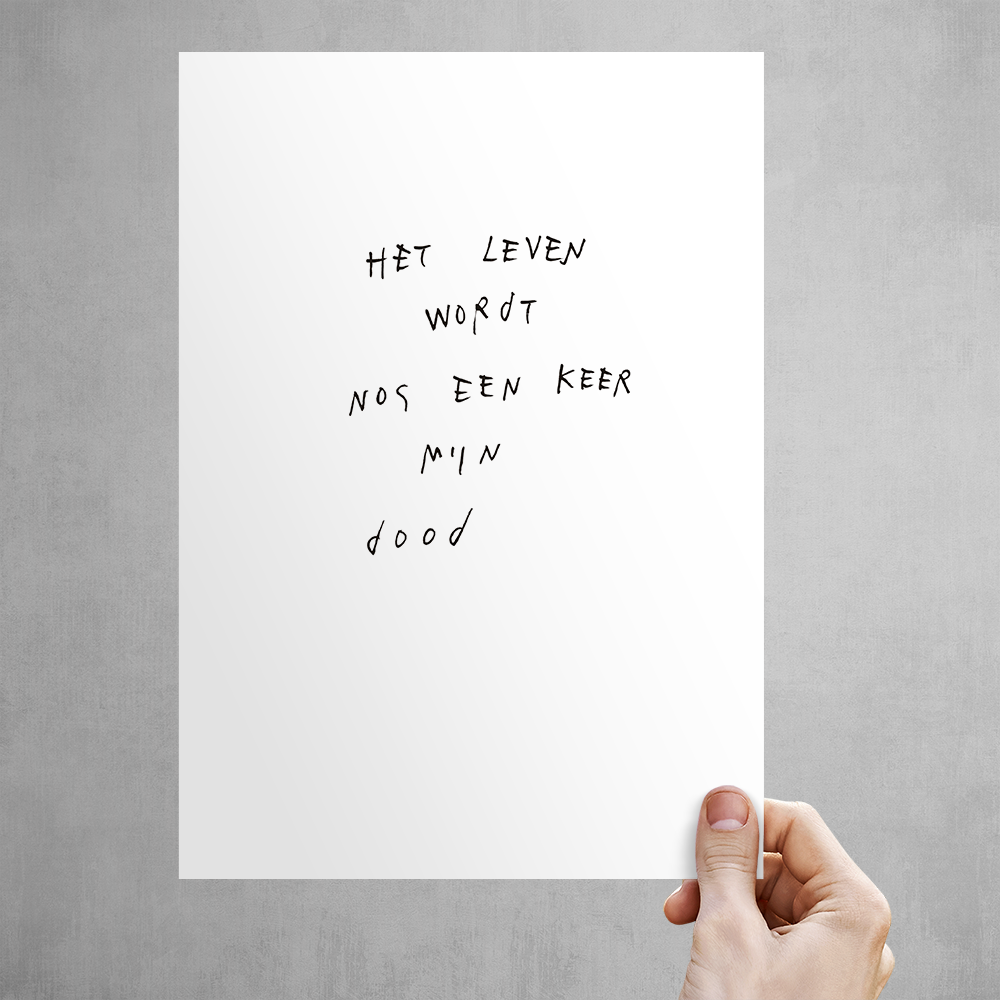 HET LEVEN
WORdT
NOG EEN KEER
MIJN
dood